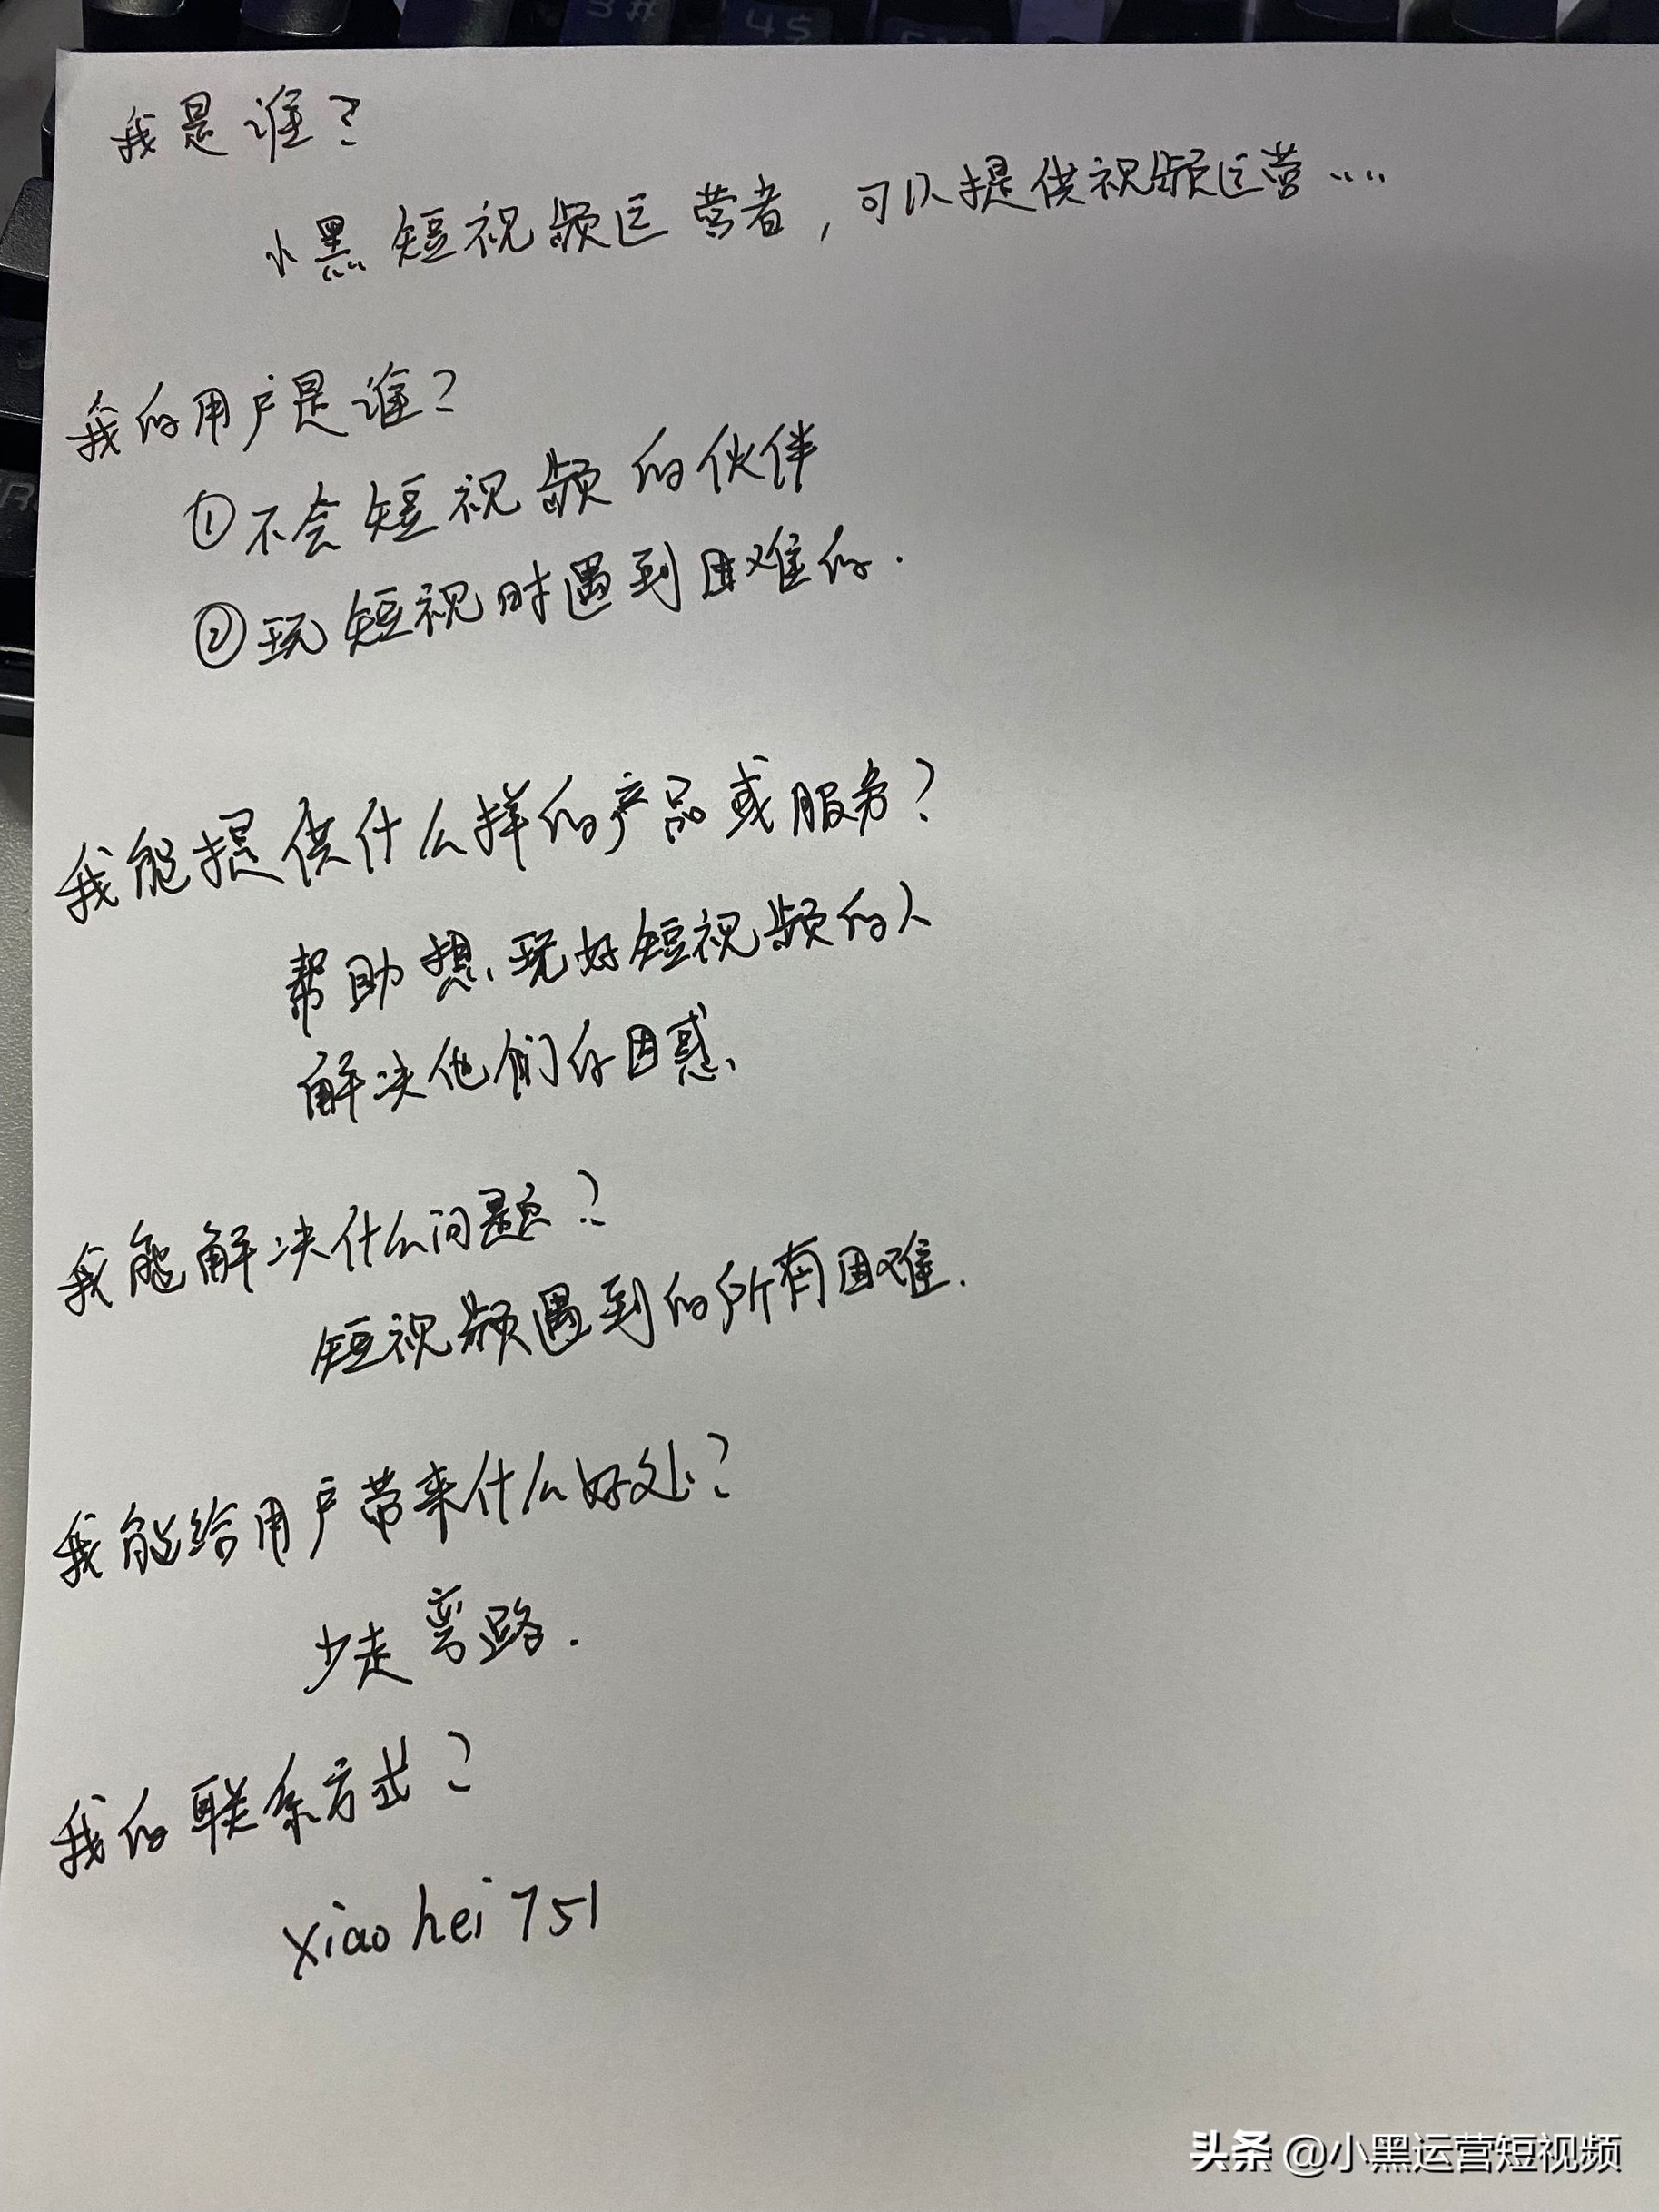 3# 4S
我是谁？
小黑短视频运营者，可以提供视频运营····
我的用户是谁？
①不会短视频的伙伴
②玩短视时遇到困难的.
我能提供什么样的产品或服务？
帮助想、玩好短视频的人
解决他们的困惑、
我能解决什么问题？
短视频遇到的所有困难.
我能给用户带来什么好处？
少走弯路.
我的联系方式？
xiaohei751
头条 @小黑运营短视频